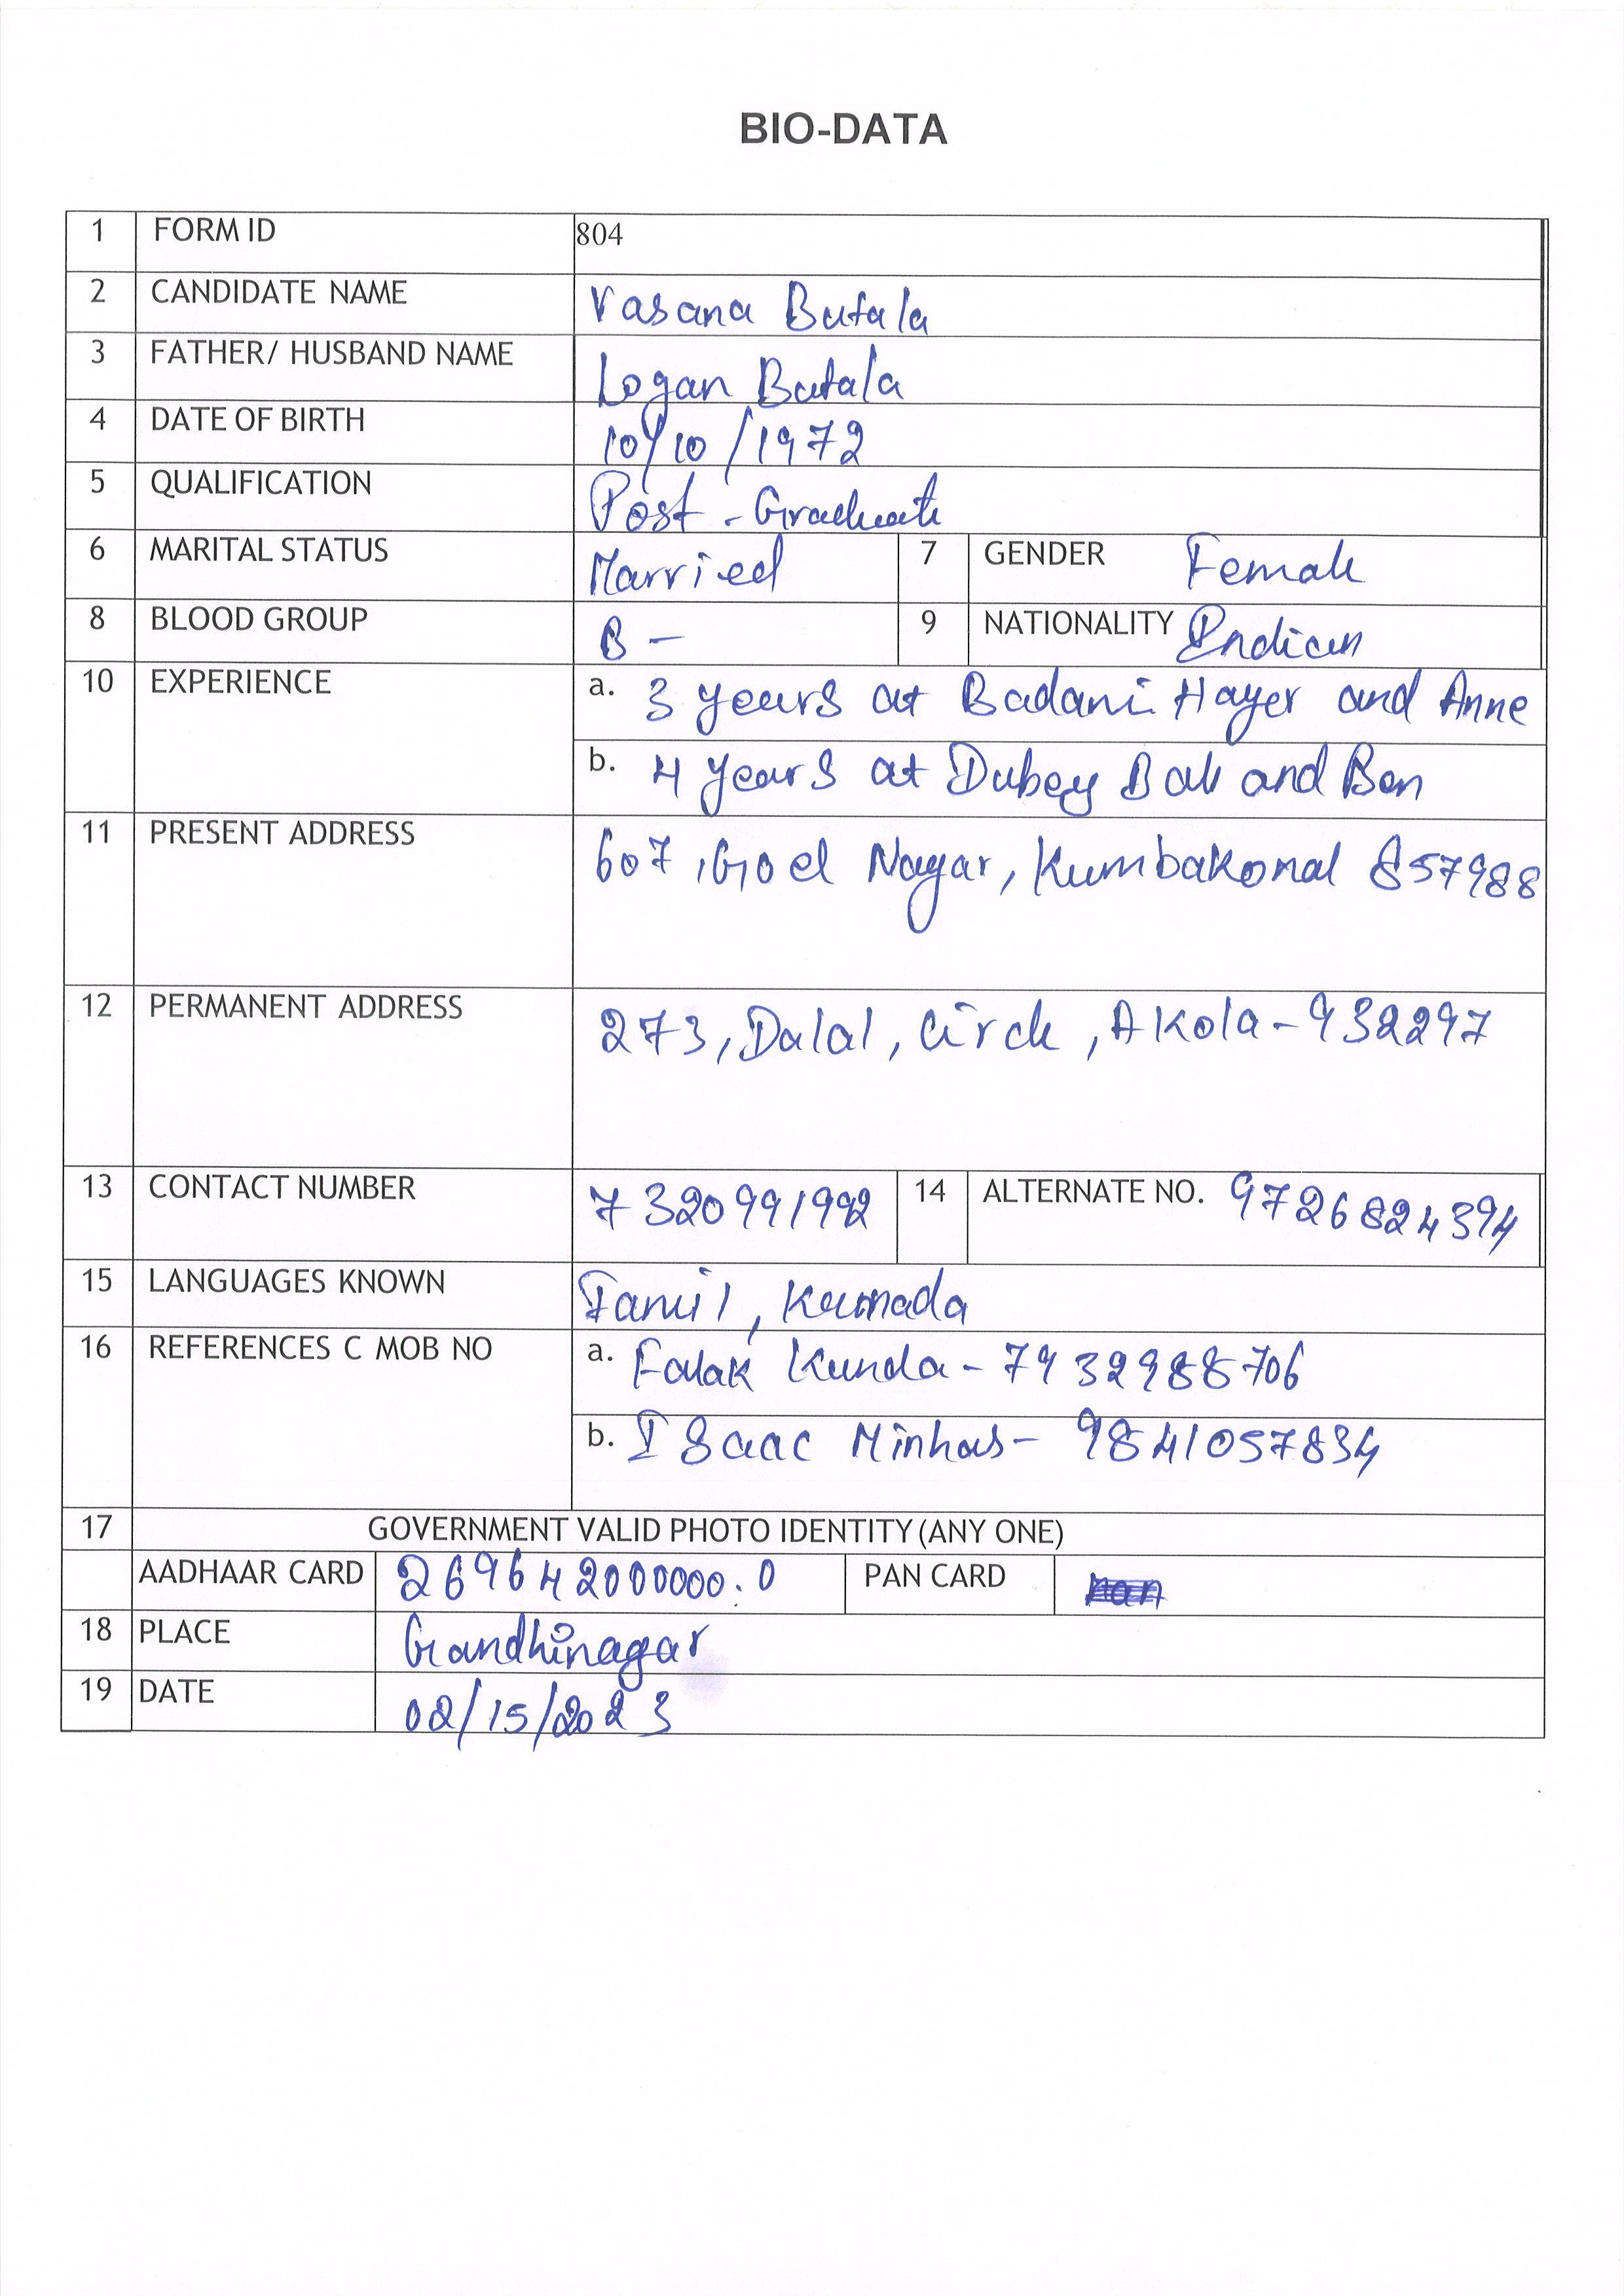 BIO-DATA
1 FORM ID 804
2 CANDIDATE NAME Vasana Butala
3 FATHER/ HUSBAND NAME Logan Butala
4 DATE OF BIRTH 10/10/1972
5 QUALIFICATION Post-Graduate
6 MARITAL STATUS Married 7 GENDER Female
8 BLOOD GROUP B- 9 NATIONALITY Indian
10 EXPERIENCE a. 3 years at Badami Hayer and Anne
b. 4 years at Dubey Bali and Ben
11 PRESENT ADDRESS 607, Goel Nagar, Kumbakonal 857988
12 PERMANENT ADDRESS 273, Dalal, Circle, Akola-932297
13 CONTACT NUMBER 7320991992 14 ALTERNATE NO. 9726824394
15 LANGUAGES KNOWN Tamil, Kannada
16 REFERENCES C MOB NO a. Falak Kunda-7932988706
b. Isaac Minhas-9841057834
17 GOVERNMENT VALID PHOTO IDENTITY (ANY ONE)
AADHAAR CARD 269642000000.0 PAN CARD
18 PLACE Gandhinagar
19 DATE 02/15/2023